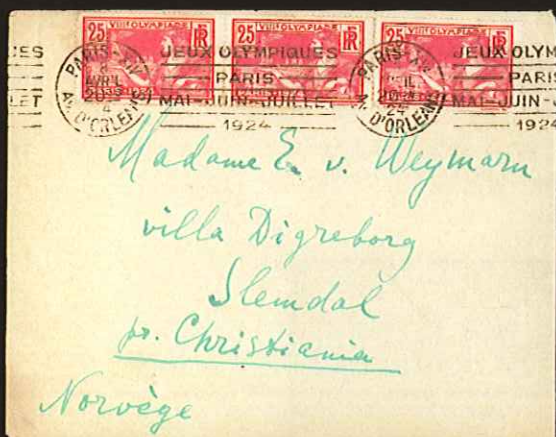 25 VIIIE OLYMPIADE RF 25 VIIIE OLYMPIADE RF 25 VIIIE OLYMPIADE RF
PARIS-XIV
AVRIL
24
AV. D'ORLEANS
JEUX OLYMPIQUES
PARIS
MAI-JUIN-JUILLET
1924
PARIS-XIV
24
AV. D'ORLEANS
JEUX OLYM
PARIS
MAI-JUIN-
1924
Madame E. v. Weymarn
villa Digreborg
Slemdal
pr. Christiania
Norvège